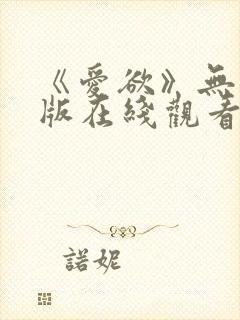 《愛欲》無
版在綫觀看
諾妮